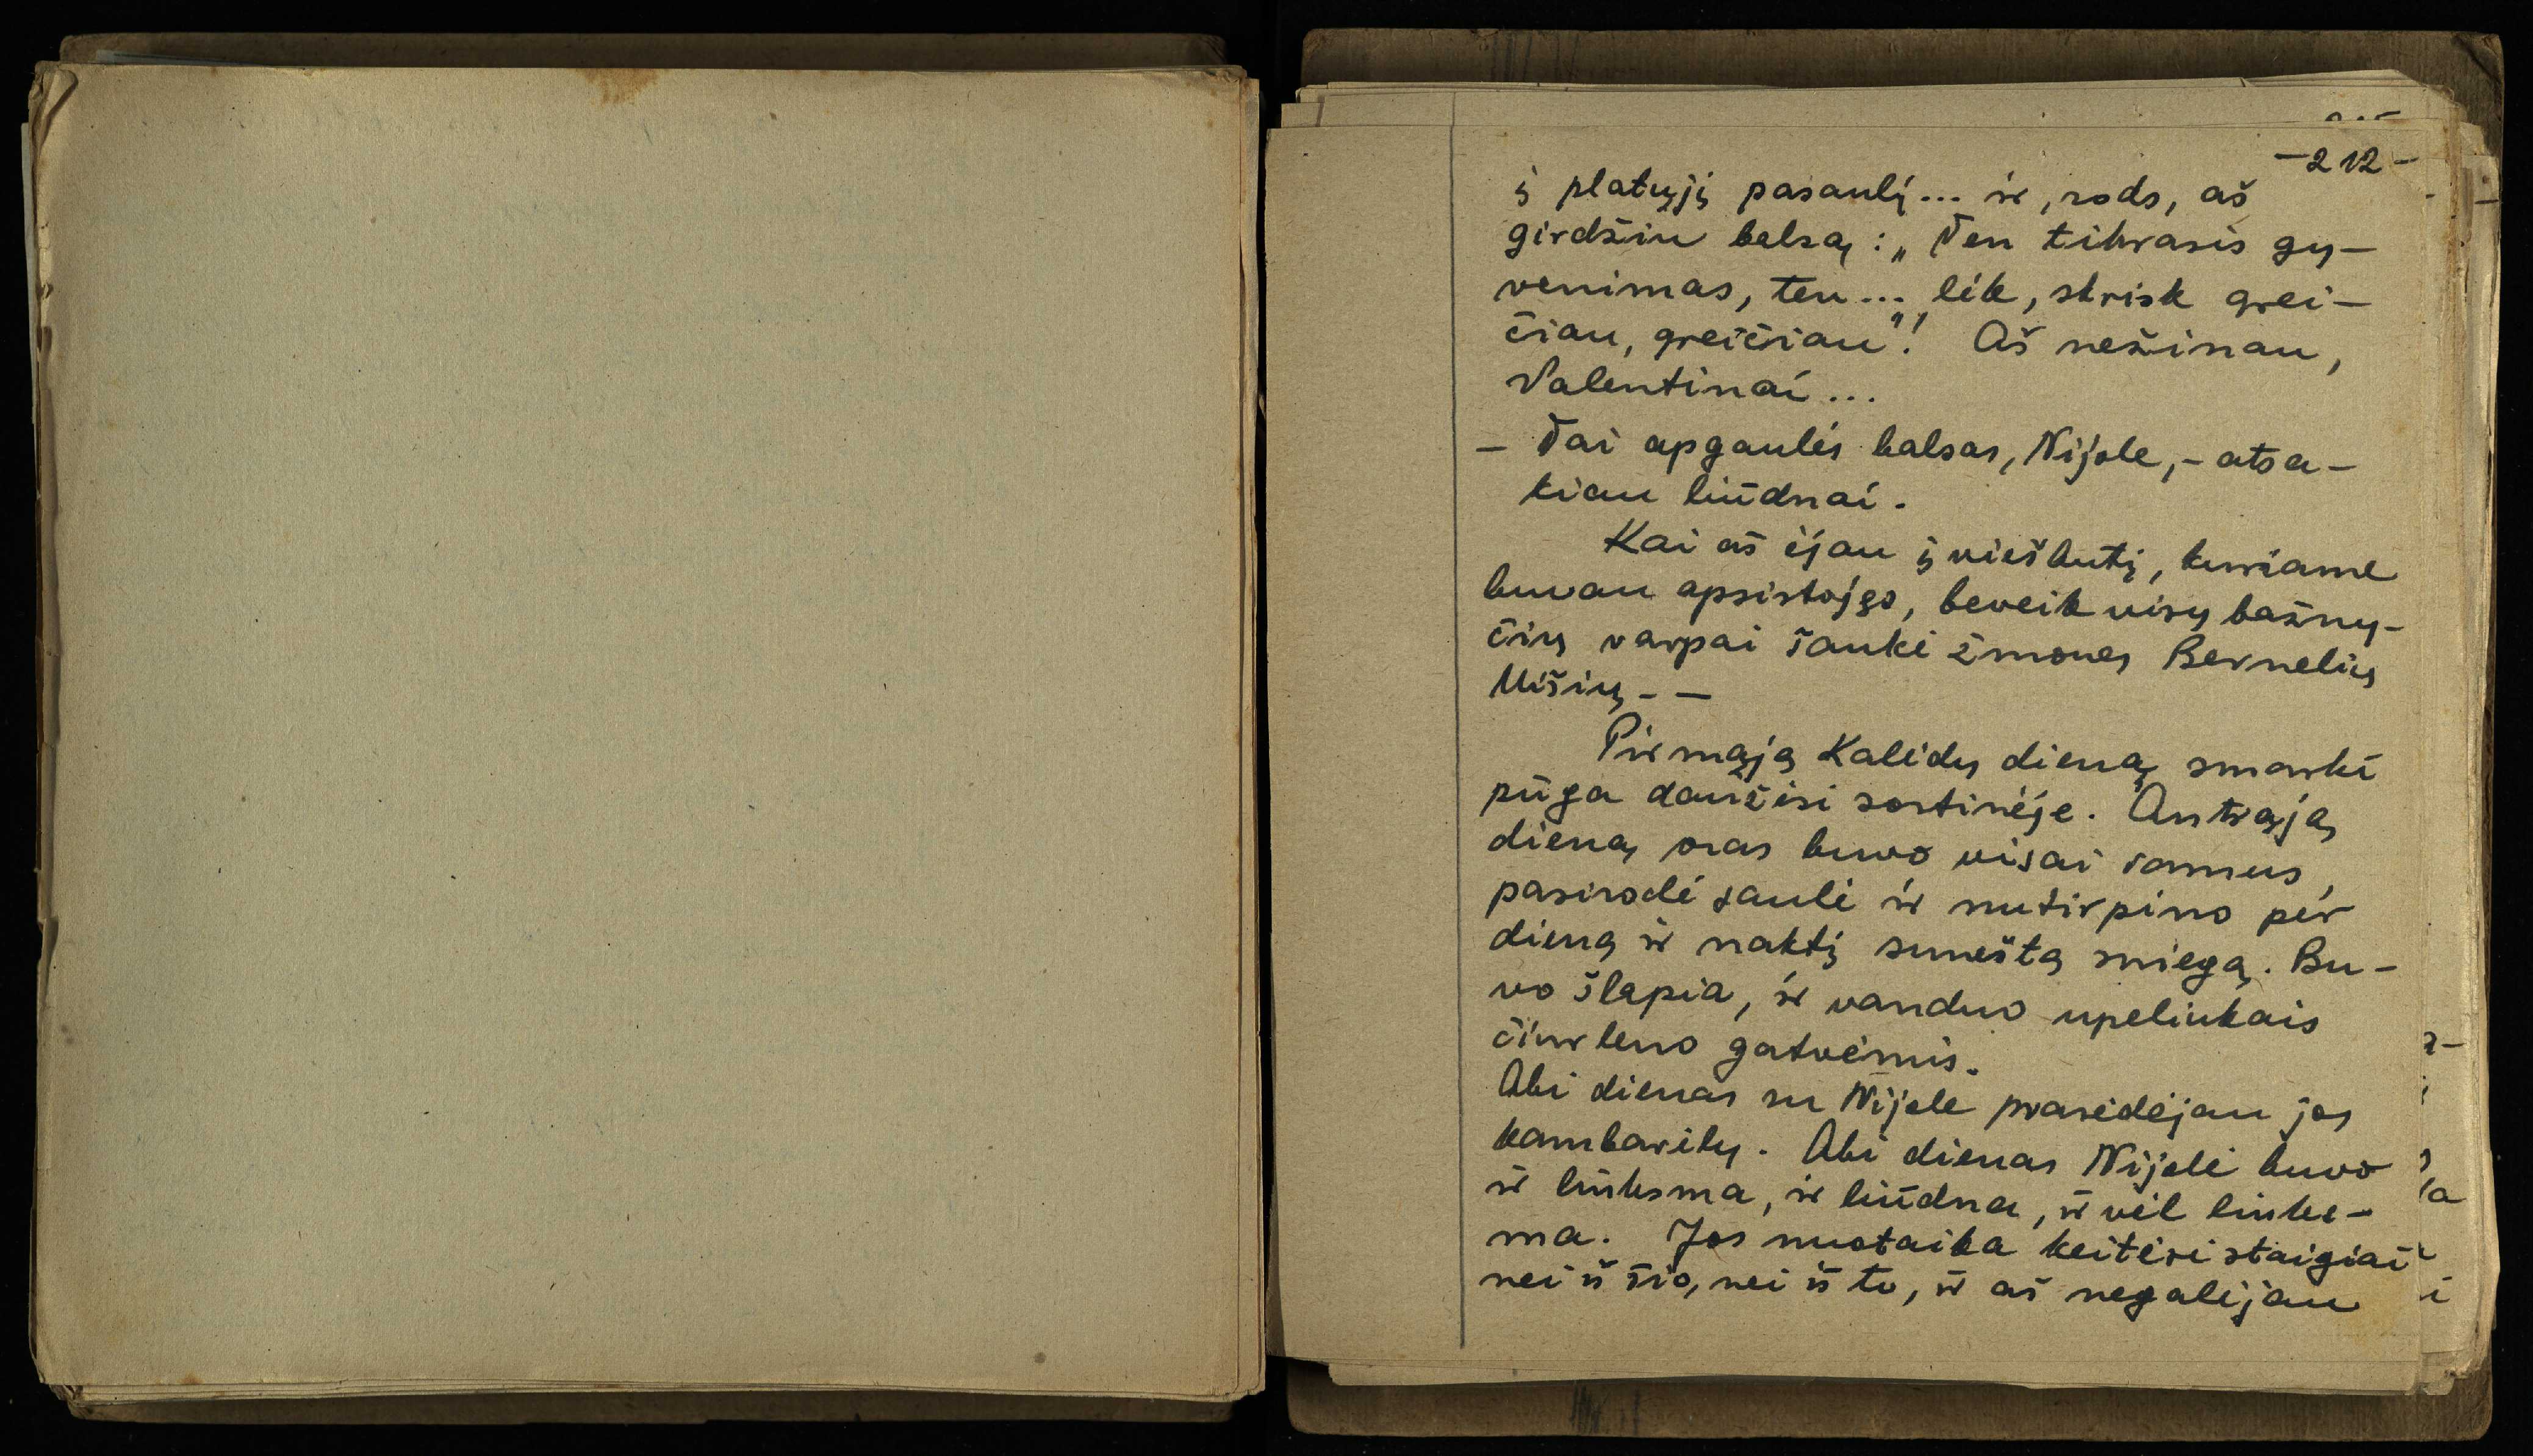 -212-
į platųjį pasaulį... ir, rods, aš
girdžiu balsą: „Ten tikrasis gy-
venimas, ten... lėk, skrisk grei-
čiau, greičiau"! Aš nežinau,
Valentinai...
- Tai apgaulės balsas, Nijole, - atsa-
kiau liūdnai.
Kai aš ėjau į viešbutį, kuriame
buvau apsistojęs, beveik visų bažny-
čių varpai šaukė žmones Bernelių
Mišių - -
Pirmąją Kalėdų dieną smarki
pūga daužėsi sostinėje. Antrąją
dieną oras buvo visai ramus,
pasirodė saulė ir nutirpino per
dieną ir naktį suneštą sniegą. Bu-
vo šlapia, ir vanduo upeliukais
čiurleno gatvėmis.
Abi dienas su Nijole prasėdėjau jos
kambarėly. Abi dienas Nijolė buvo
ir linksma, ir liūdna, ir vėl links-
ma. Jos nuotaika keitėsi staigiai
nei iš šio, nei iš to, ir aš negalėjau